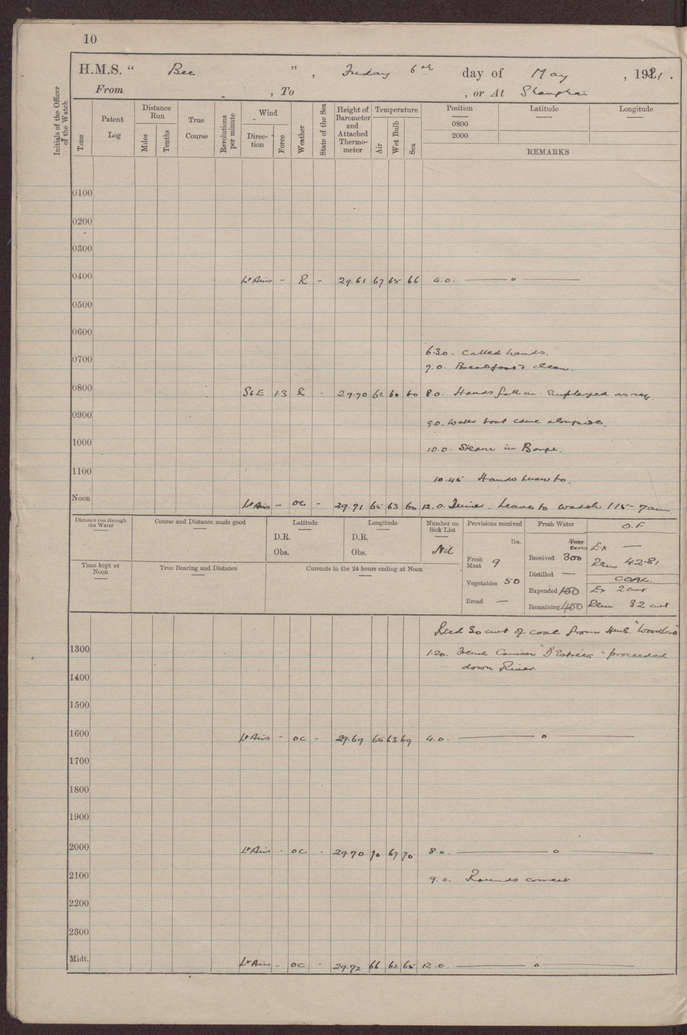 10
H.M.S. " Bee " , Friday 6th day of May , 1921.
From , To , or At Shanghai
Initials of the Officer of the Watch
Time
Patent Log
Distance Run
Miles
Tenths
True Course
Revolutions per minute
Wind
Direction
Force
Weather
State of the Sea
Height of Barometer and Attached Thermometer
Temperature
Air
Wet Bulb
Sea
Position Latitude Longitude
0800
2000
REMARKS
0100
0200
0300
0400 Lt Airs - R - 29.61 67 65 66 4.0. ——— " ———
0500
0600
6.30. Called hands.
0700
7.0. Breakfast & clean.
0800 SbE 1.3 R - 29.70 62 60 60 8.0. Hands fell in Employed as req.
0900
9.0. Water boat came alongside.
1000
10.0. Steam in Barge.
1100
10.45 Hands
Noon Lt Airs - OC - 29.71 65 63 60 12.0. Dinner. Leave to watch 115 - 7am
Distance run through the Water
Course and Distance made good
Latitude
D.R.
Obs.
Longitude
D.R.
Obs.
Number on Sick List
Nil
Provisions received
lbs.
Fresh Meat 9
Vegetables 50
Bread —
Fresh Water
Tons
Received 300
Distilled —
Expended 150
Remaining 450
O.F
Ex —
Rem 42.81
COAL
Ex 2 cwt
Rem 82 cwt
Zone kept at Noon
True Bearing and Distance
Currents in the 24 hours ending at Noon
Recd 30 cwt of coal from Hulk
1300
1.20. French Cruiser proceeded
down River
1400
1500
1600 Lt Airs - OC - 29.69 65 63 69 4.0. ——— " ———
1700
1800
1900
2000 Lt Airs - OC - 29.70 70 67 70 8.0. ——— " ———
2100
9.0. Rounds correct
2200
2300
Midt. Lt Airs - OC - 29.72 66 62 65 12.0 ——— " ———